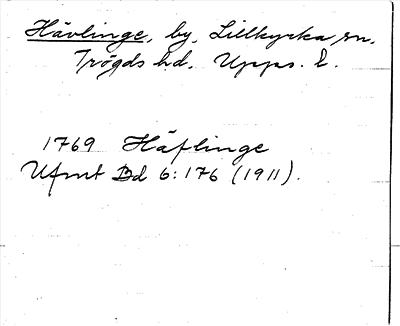 Hävlinge, by, Lillkyrka sn,
Trögds hd. Upps. l.
1769 Häflinge
Ufmt Bd 6:176 (1911).